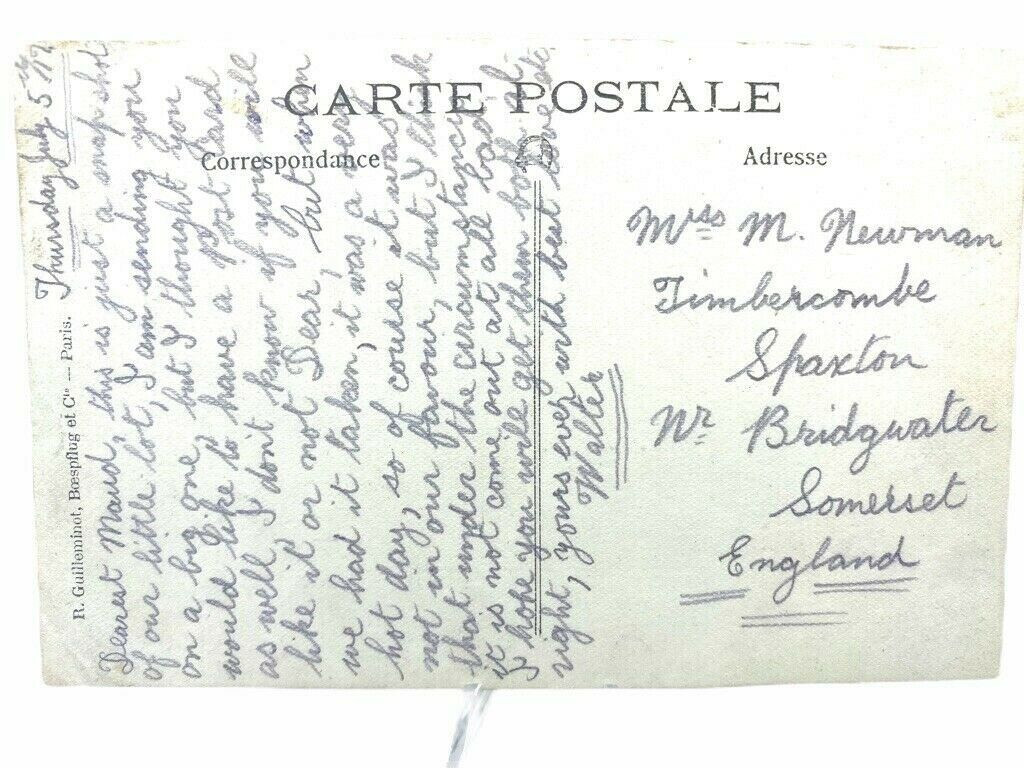 CARTE POSTALE
Correspondance
Adresse
R. Guilleminot, Bœspflug et Cie — Paris.
Thursday July 5th 17
Dearest Maud, this is just a snap shot
of our little lot, I am sending you
on a big one, but I thought you
would like to have a post card
as well, I don't know if you will
like it or not Dear, but when
we had it taken, it was a very
hot day, so of course it was
not in our favour, but I think
that under the circumstances
it is not come out at all bad. 
I hope you will get them both al-
right, yours ever with best love
Walter
Miss M. Newman
Timbercombe
Spaxton
Nr Bridgwater
Somerset
England